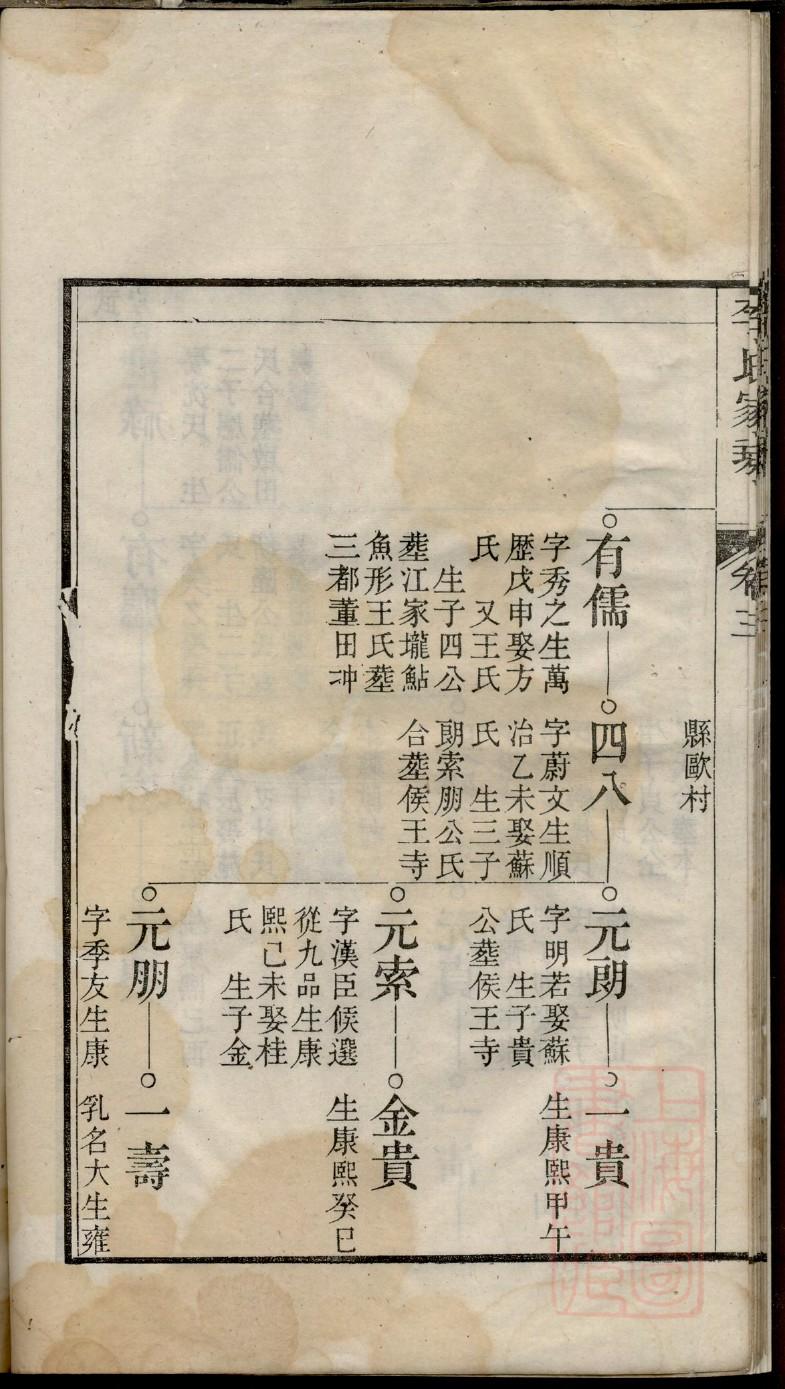 李氏家乘
卷三
縣歐村
有儒
字秀之生萬
歷戊申娶方
氏　又王氏
生子四公
塟江家壠鮎
魚形王氏塟
三都董田冲
四八
字蔚文生順
治乙未娶蘇
氏　生三子
朗索朋公氏
合塟侯王寺
元朗
字明若娶蘇
氏　生子貴
公塟侯王寺
一貴
生康熙甲午
元索
字漢臣候選
從九品生康
熙己未娶桂
氏　生子金
金貴
生康熙癸巳
元朋
字季友生康
一壽
乳名大生雍